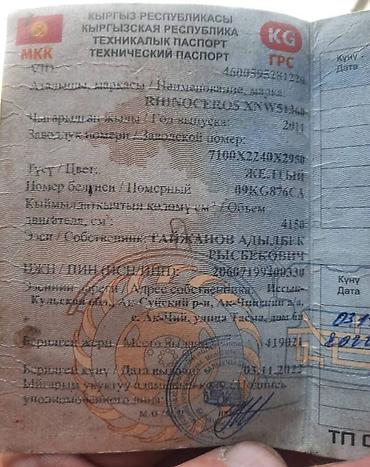 КЫРГЫЗ РЕСПУБЛИКАСЫ
КЫРГЫЗСКАЯ РЕСПУБЛИКА
ТЕХНИКАЛЫК ПАСПОРТ
ТЕХНИЧЕСКИЙ ПАСПОРТ
МКК
KG
ГРС
Күнү
Дата
Аталышы, маркасы / Наименование, марка
RHINOCEROS XNW51360
Чыгарылган жылы / Год выпуска:
2011
Заводдук номери / Заводской номер:
7100X2240X2950
Түсү / Цвет:
ЖЕЛТЫЙ
Номер белгиси / Номерный
09KG876CA
Кыймылдаткычтын көлөмү см³ / Объем
двигателя, см³:
4150
Ээси / Собственник: ТАЙЖАНОВ АДЫЛБЕК
РЫСБЕКОВИЧ
20607199400330
Ээсинин дареги / Адрес собственника: Иссык-
Кульская обл., Ак-Суйский р-н, Ак-Чийский а/а,
с. Ак-Чий, улица Тасма, дом
Күнү
Дата
Берилген жери / Место выдачи:
419021
Берилген күнү / Дата выдачи:
03.11.2022
Подпись
уполномоченного лица:
ТП